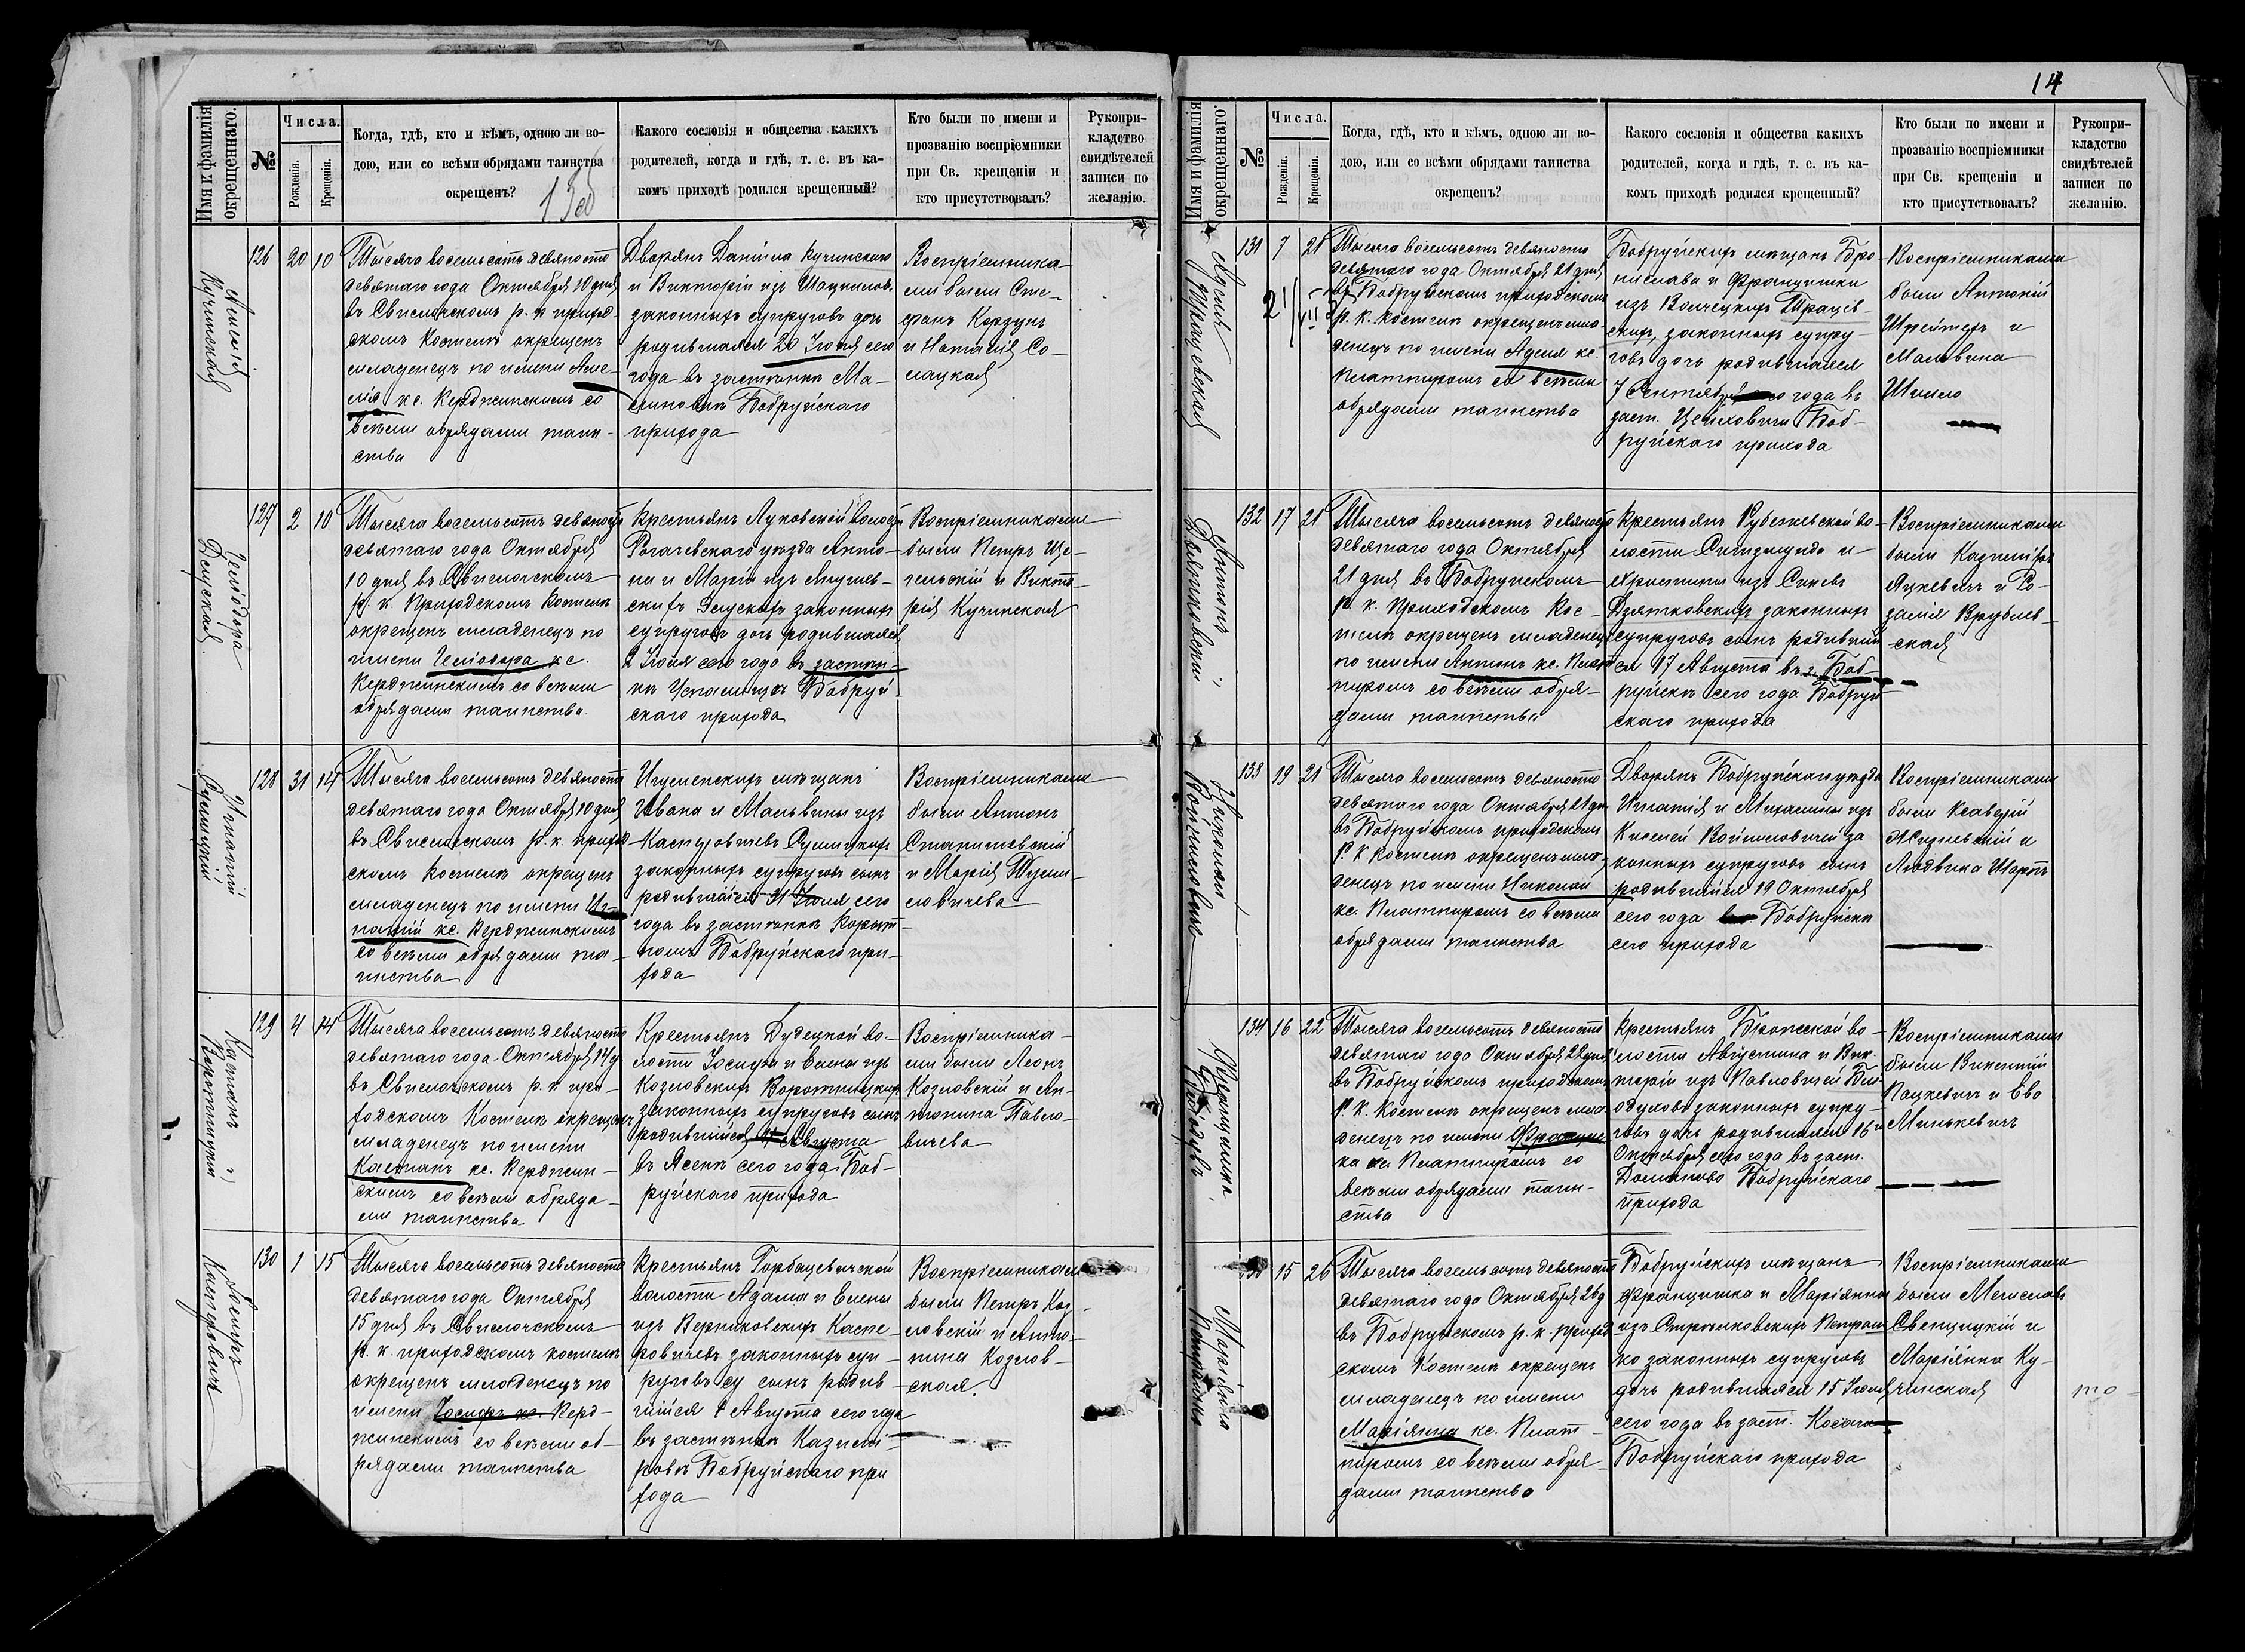 14
Имя и фамилія окрещеннаго.
№
Числа.
Рожденія.
Крещенія.
Когда, гдѣ, кто и кѣмъ, одною ли во-
дою, или со всѣми обрядами таинства
окрещенъ?
Какого сословія и общества какихъ
родителей, когда и гдѣ, т. е. въ ка-
комъ приходѣ родился крещенный?
Кто были по имени и
прозванію воспріемники
при Св. крещеніи и
кто присутствовалъ?
Рукопри-
кладство
свидѣтелей
записи по
желанію.
Кучинская
126
20
10
Тысяча восемьсотъ девяносто
девятаго года Октября 10 дня
въ Свислочскомъ р. к. приход-
скомъ Костелѣ окрещенъ
младенецъ по имени Аме-
лія кс. Керджинскимъ со
всѣми обрядами таин-
ства
Дворянъ Даніила Кучинскаго
и Викторіи изъ
законныхъ супруговъ дочь
родившаяся 20 Іюля сего
года въ застѣнкѣ Ма-
Бобруйскаго
прихода
Воспріемника-
ми были Сте-
фанъ Корзунъ
и Наталія Со-
лацкая
Геліодора
127
2
10
Тысяча восемьсотъ девяносто
девятаго года Октября
10 дня въ Свислочскомъ
р. к. Приходскомъ Костелѣ
окрещенъ младенецъ по
имени Геліодора кс.
Керджинскимъ со всѣми
обрядами таинства.
Крестьянъ Луковской волости
Рогачевскаго уѣзда Анто-
на и Маріи изъ Янушев-
скихъ законныхъ
супруговъ дочь родившаяся
2 Іюля сего года въ застѣн-
кѣ Бобруй-
скаго прихода
Воспріемниками
были Петръ Ще-
гельскій и Викто-
рія Кучинская
Игнатій
128
31
14
Тысяча восемьсотъ девяносто
девятаго года Октября 10 дня
въ Свислочскомъ р. к. приход-
скомъ Костелѣ окрещенъ
младенецъ по имени Иг-
натій кс. Керджинскимъ
со всѣми обрядами та-
инства
Игуменскихъ мѣщанъ
Ивана и Мальвины изъ
законныхъ супруговъ сынъ
родившійся 31 Іюля сего
года въ застѣнкѣ
Бобруйскаго при-
хода
Воспріемниками
были Антонъ
и Марія
Каетанъ
Воротницкій
129
4
14
Тысяча восемьсотъ девяносто
девятаго года Октября 14 д
въ Свислочскомъ р. к. при-
ходскомъ Костелѣ окрещенъ
младенецъ по имени
Каетанъ кс. Керджин-
скимъ со всѣми обряда-
ми таинства
Крестьянъ Дудецкой во-
лости Іосифа и Елены изъ
Козловскихъ Воротницкихъ
законныхъ супруговъ сынъ
родившійся 4 Августа
въ Ясенѣ сего года Боб-
руйскаго прихода
Воспріемника-
ми были Леонъ
Козловскій и Ан-
тонина Павло-
вичева
Іосифъ
Касперовичъ
130
1
15
Тысяча восемьсотъ девяносто
девятаго года Октября
15 дня въ Свислочскомъ
р. к. приходскомъ костелѣ
окрещенъ младенецъ по
имени Іосифъ кс. Керд-
жинскимъ со всѣми об-
рядами таинства
Крестьянъ Горбацевичской
волости Адама и Елены
изъ Верниковскихъ Каспе-
ровичевъ законныхъ суп-
руговъ су сынъ родив
шійся 1 Августа сего года
въ застѣнкѣ Казимі-
ровѣ Бобруйскаго при
хода
Воспріемниками
были Петръ Коз-
ловскій и Анто-
нина Козлов-
ская.
Имя и фамилія окрещеннаго.
№
Числа.
Рожденія.
Крещенія.
Когда, гдѣ, кто и кѣмъ, одною ли во-
дою, или со всѣми обрядами таинства
окрещенъ?
Какого сословія и общества какихъ
родителей, когда и гдѣ, т. е. въ ка-
комъ приходѣ родился крещенный?
Кто были по имени и
прозванію воспріемники
при Св. крещеніи и
кто присутствовалъ?
Рукопри-
кладство
свидѣтелей
записи по
желанію.
131
7
21
Тысяча восемьсотъ девяносто
девятаго года Октября 21 дня
въ Бобруйскомъ приходскомъ
р. к. костелѣ окрещенъ мла-
денецъ по имени Аделя кс.
Пиотпиромъ со всѣми
обрядами таинства
Бобруйскихъ мѣщанъ Бро-
нислава и Францишки
законныхъ супру-
говъ дочь родившаяся
7 Сентября сего года въ
заст. Боб-
руйскаго прихода
Воспріемниками
были Антоній
и
Мальвина
Антонъ
Дзятковскій
132
17
21
Тысяча восемьсотъ девяносто
девятаго года Октября
21 дня въ Бобруйскомъ
р. к. Приходскомъ Кос-
телѣ окрещенъ младенецъ
по имени Антонъ кс. Пиот-
пиромъ со всѣми обря-
дами таинства
Крестьянъ во-
лости Сигизмунда и
Христины изъ
Дзятковскихъ законныхъ
супруговъ сынъ родивший
ся 17 Августа въ г. Боб-
руйскѣ сего года Бобруй-
скаго прихода
Воспріемниками
были Казиміръ
Яцкевичъ и Ро-
залія Врублев-
ская
133
19
21
Тысяча восемьсотъ девяносто
девятаго года Октября 21 дня
въ Бобруйскомъ приходскомъ
р. к. костелѣ окрещенъ мла-
денецъ по имени Николай
кс. Пиотпиромъ со всѣми
обрядами таинства
Дворянъ Бобруйскаго уѣзда
Игнатія и Михалины изъ
за
конныхъ супруговъ сынъ
родившійся 19 Октября
сего года Бобруйскѣ
сего прихода
Воспріемниками
были Ксаверій
и
Людвика
Францишка
134
16
22
Тысяча восемьсотъ девяносто
девятаго года Октября 22 дня
въ Бобруйскомъ приходскомъ
р. к. Костелѣ окрещенъ мла-
денецъ по имени Францишка
кс. Пиотпиромъ со
всѣми обрядами таин-
ства
Крестьянъ во-
лости Августина и Вик-
торіи изъ Павловичей
законныхъ супру-
говъ дочь родившаяся 16
Октября сего года въ заст.
Доманово Бобруйскаго
прихода
Воспріемниками
были Викентій
Пацкевичъ и Ева
Минькевичъ
Маріянна
15
26
Тысяча восемьсотъ девяносто
девятаго года Октября 26 д
въ Бобруйскомъ р. к. приход
скомъ Костелѣ окрещенъ
младенецъ по имени
Маріянна кс. Пиот-
пиромъ со всѣми обря-
дами таинства
Бобруйскихъ мѣщанъ
Францишка и Маріянны
изъ
ко законныхъ супруговъ
дочь родившаяся 15 Іюля
сего года въ заст.
Бобруйскаго прихода
Воспріемниками
были Мечиславъ
Свенцицкій и
Маріянна Ку-
чинская